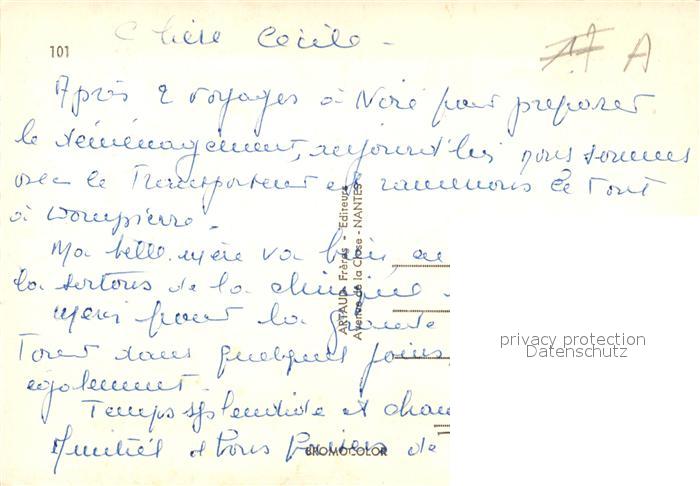 Chère Cécile -
101
A
Après 2 voyages à Niré pour préparer
le déménagement, aujourd'hui nous sommes
avec le Transporteur et ramenons le Tout
à Dompierre.
Ma belle-mère va bien,
la sortons de la clinique
Merci pour la grande
Toret dans quelques jours,
également.
Temps splendide et chau
Amitiés et bons baisers de
ARTAUD Frères - Editeurs
Avenue de la Close - NANTES
BROMOCOLOR
privacy protection
Datenschutz